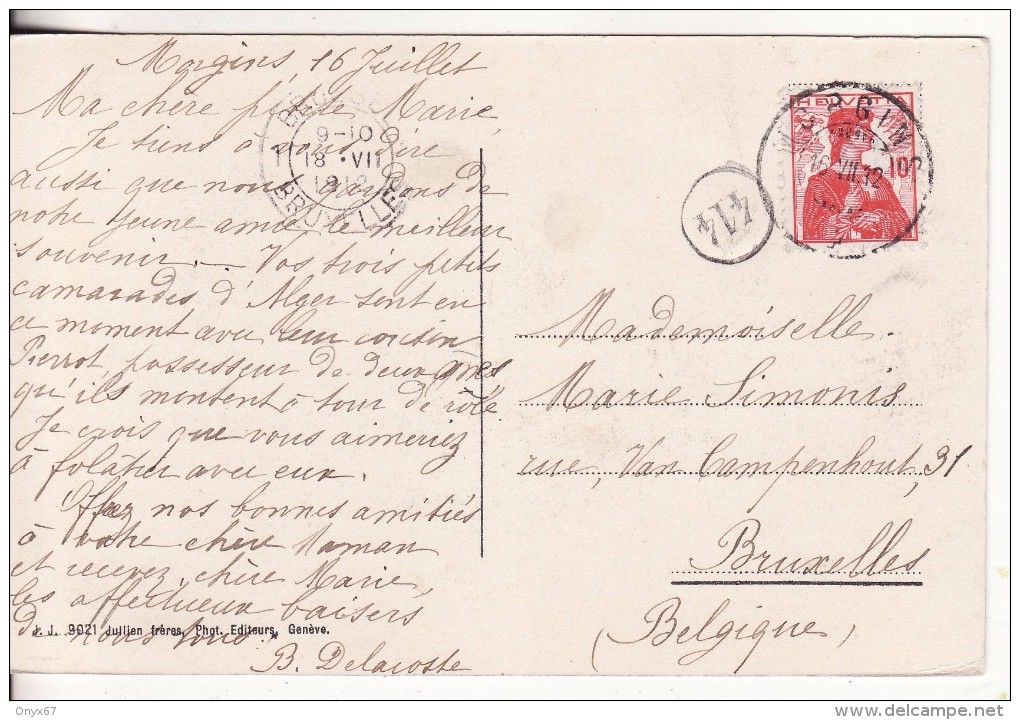 Morgins, 16 Juillet
Ma chère petite Marie,
Je tiens à vous dire
aussi que nous avons de
notre jeune amie le meilleur
souvenir. — Vos trois petits
camarades d'Alger sont en
ce moment avec leur cousin
Pierrot, possesseur de deux ânes
qu'ils montent à tour de rôle
Je crois que vous aimeriez
à folâtrer avec eux.
Offrez nos bonnes amitiés
à votre chère Maman
et recevez, chère Marie,
les affectueux baisers
de nous tous.
B. Delacoste
J. J. 9021 Jullien frères, Phot. Editeurs, Genève.
BRUXELLES
9-10
18 • VII
1912
414
HELVETIA
10
MORGINS
16 VII 12
Mademoiselle
Marie Simonis
rue, Van Campenhout, 31
Bruxelles
(Belgique)
Onyx67
www.delcampe.net